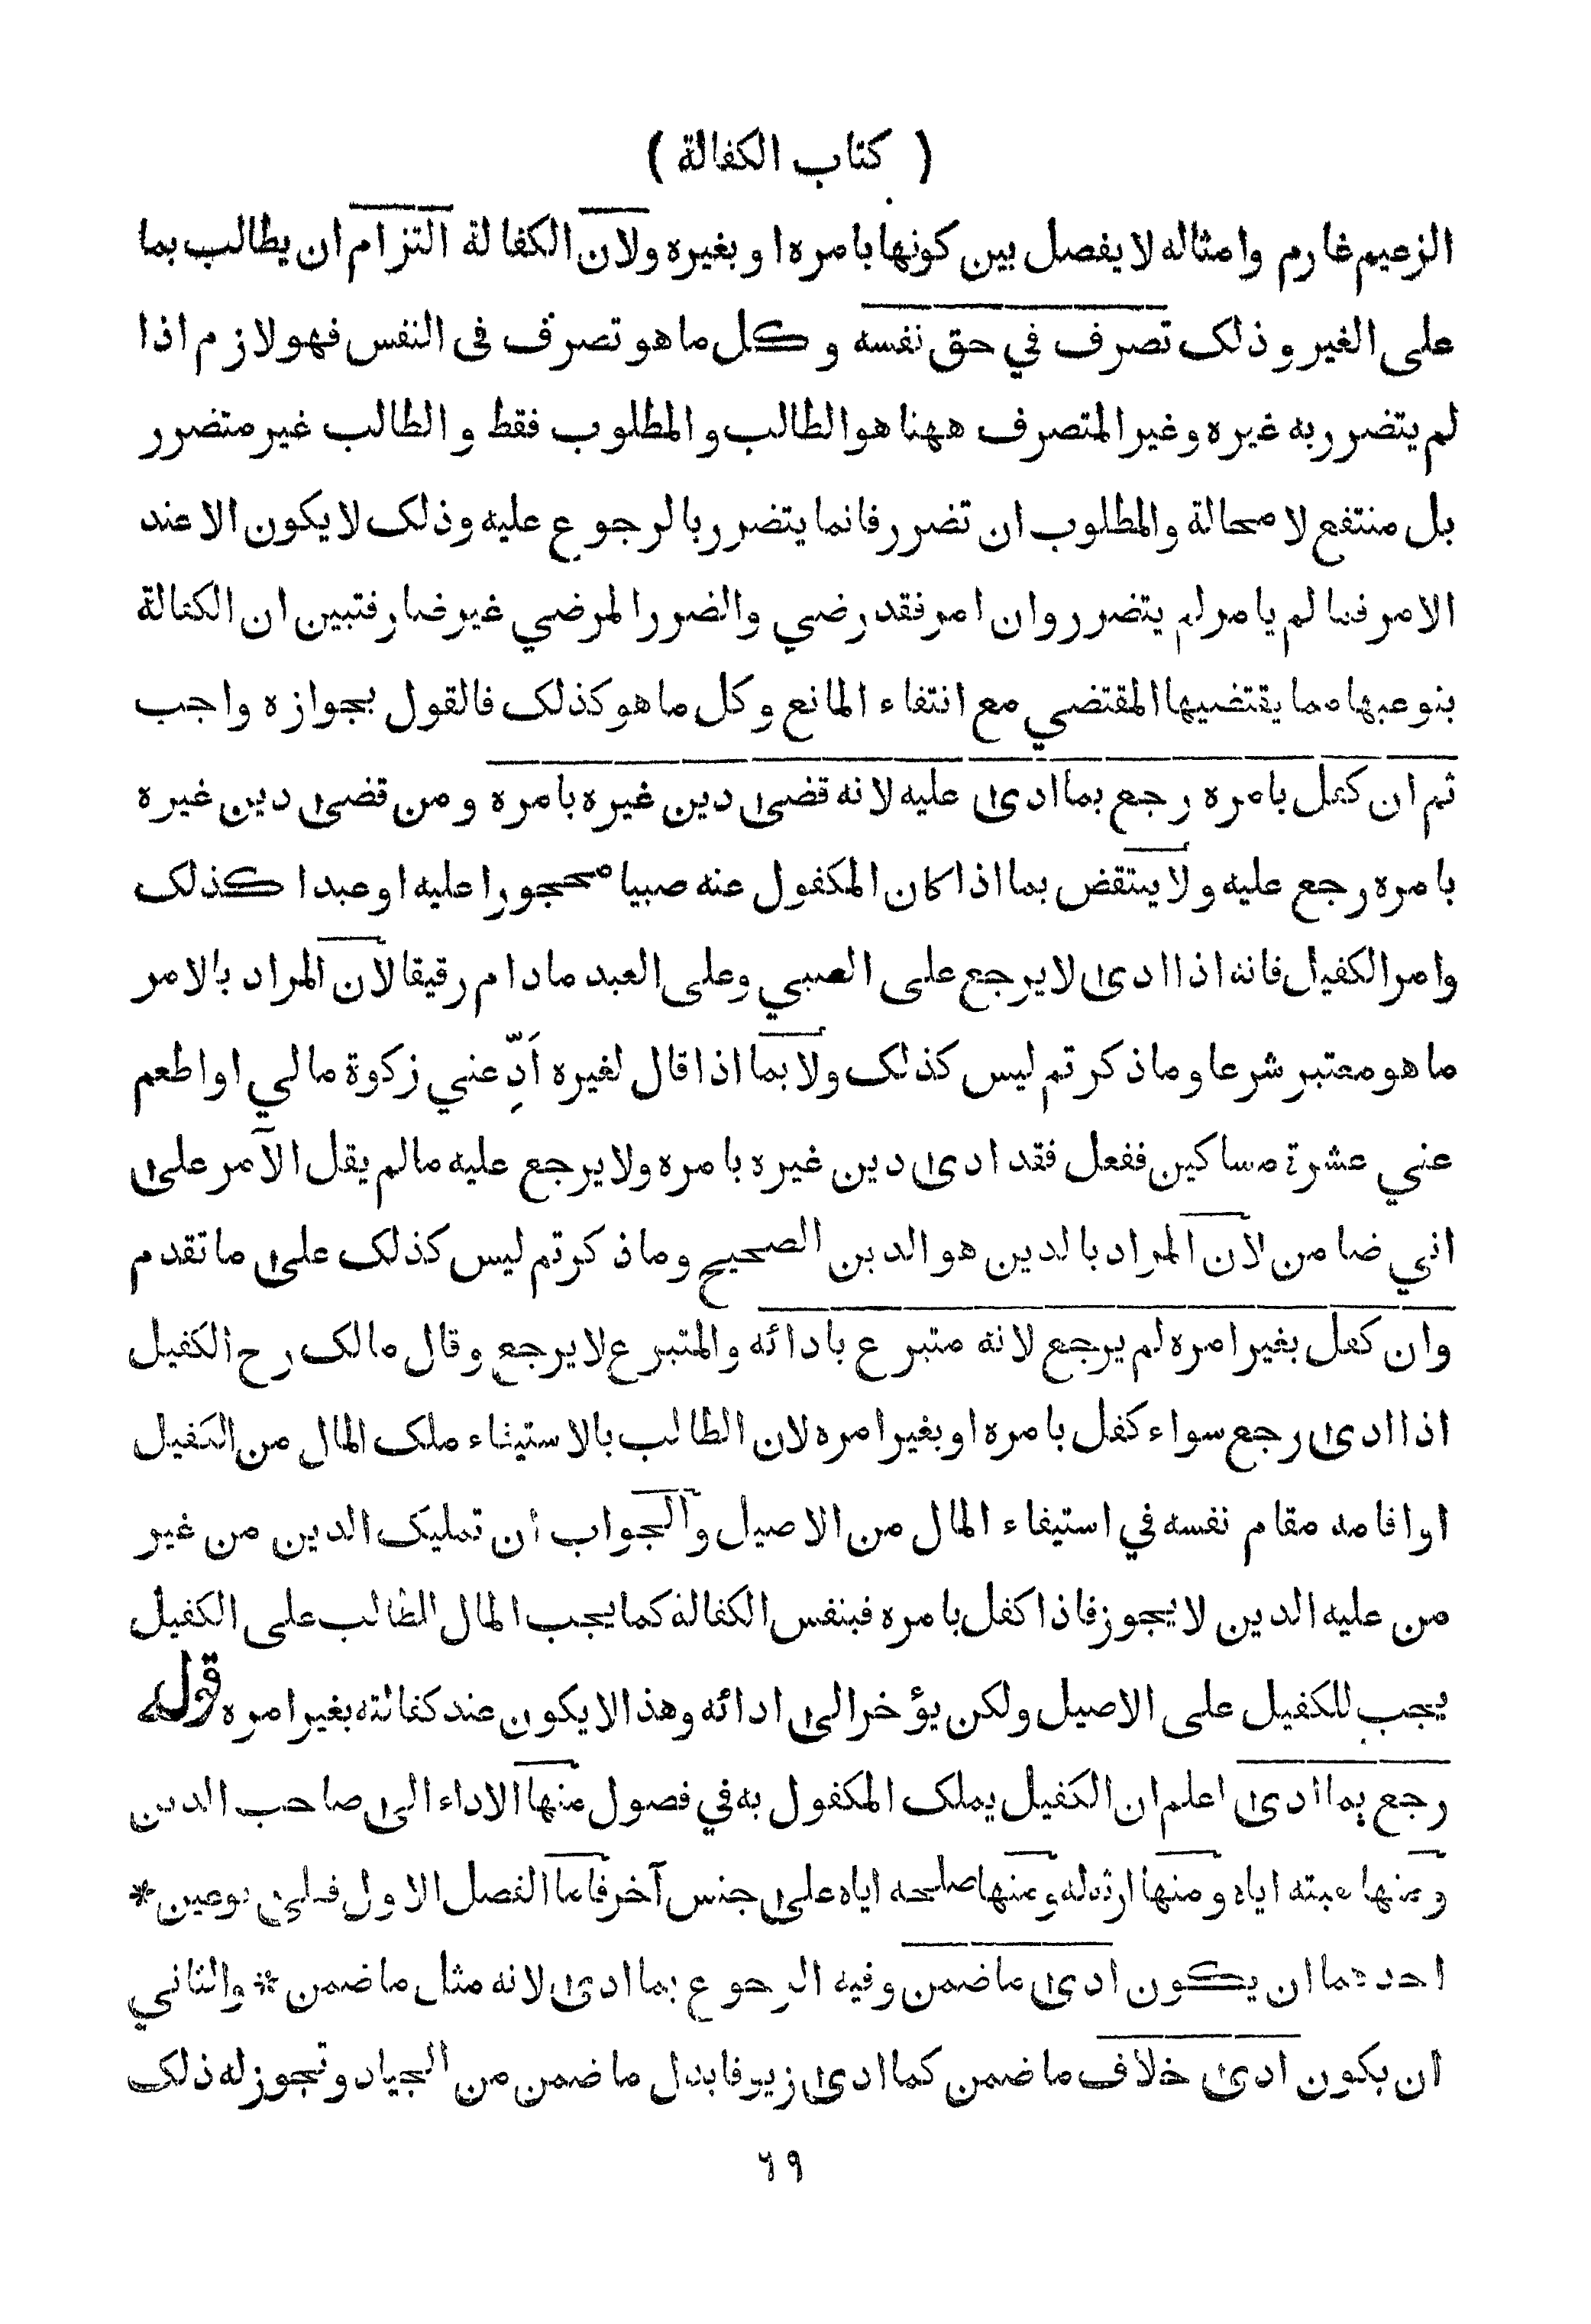 ( كتاب الكفالة )
الزعيم غارم وامثاله لا يفصل بين كونها بامره او بغيره ولان الكفالة التزام ان يطالب بما
على الغير وذلك تصرف في حق نفسه وكل ما هو تصرف فى النفس فهو لازم اذا
لم يتضرر به غيره وغير المتصرف ههنا هو الطالب والمطلوب فقط والطالب غير متضرر
بل منتفع لا محالة والمطلوب ان تضرر فانما يتضرر بالرجوع عليه وذلك لا يكون الا عند
الامر فما لم يامر لم يتضرر وان امر فقد رضي والضرر المرضي غير ضار فتبين ان الكفالة
بنوعيها مما يقتضيها المقتضي مع انتفاء المانع وكل ما هو كذلك فالقول بجوازه واجب
ثم ان كفل بامره رجع بما ادى عليه لانه قضى دين غيره بامره ومن قضى دين غيره
بامره رجع عليه ولا ينتقض بما اذا كان المكفول عنه صبيا محجورا عليه او عبدا كذلك
وامر الكفيل فانه اذا ادى لا يرجع على الصبي وعلى العبد ما دام رقيقا لان المراد بالامر
ما هو معتبر شرعا وما ذكرتم ليس كذلك ولا بما اذا قال لغيره اَدِّ عني زكوة مالي او اطعم
عني عشرة مساكين ففعل فقد ادى دين غيره بامره ولا يرجع عليه ما لم يقل الآمر على
اني ضامن لان المراد بالدين هو الدين الصحيح وما ذكرتم ليس كذلك على ما تقدم
وان كفل بغير امره لم يرجع لانه متبرع بادائه والمتبرع لا يرجع وقال مالك رح الكفيل
اذا ادى رجع سواء كفل بامره او بغير امره لان الطالب بالاستيفاء ملك المال من الكفيل
او اقامه مقام نفسه في استيفاء المال من الاصيل والجواب ان تمليك الدين من غير
من عليه الدين لا يجوز فاذا كفل بامره فبنفس الكفالة كما يجب المال للطالب على الكفيل
يجب للكفيل على الاصيل ولكن يؤخر الى ادائه وهذا لا يكون عند كفالته بغير امره قوله
رجع بما ادى اعلم ان الكفيل يملك المكفول به في فصول منها الاداء الى صاحب الدين
ومنها هبته اياه ومنها ارثه له ومنها صلحه اياه على جنس آخر فاما الفصل الاول فعلى نوعين *
احدهما ان يكون ادى ما ضمن وفيه الرجوع بما ادى لانه مثل ما ضمن * والثاني
ان يكون ادى خلاف ما ضمن كما ادى زيوفا بدل ما ضمن من الجياد وتجوز له ذلك
٦٩